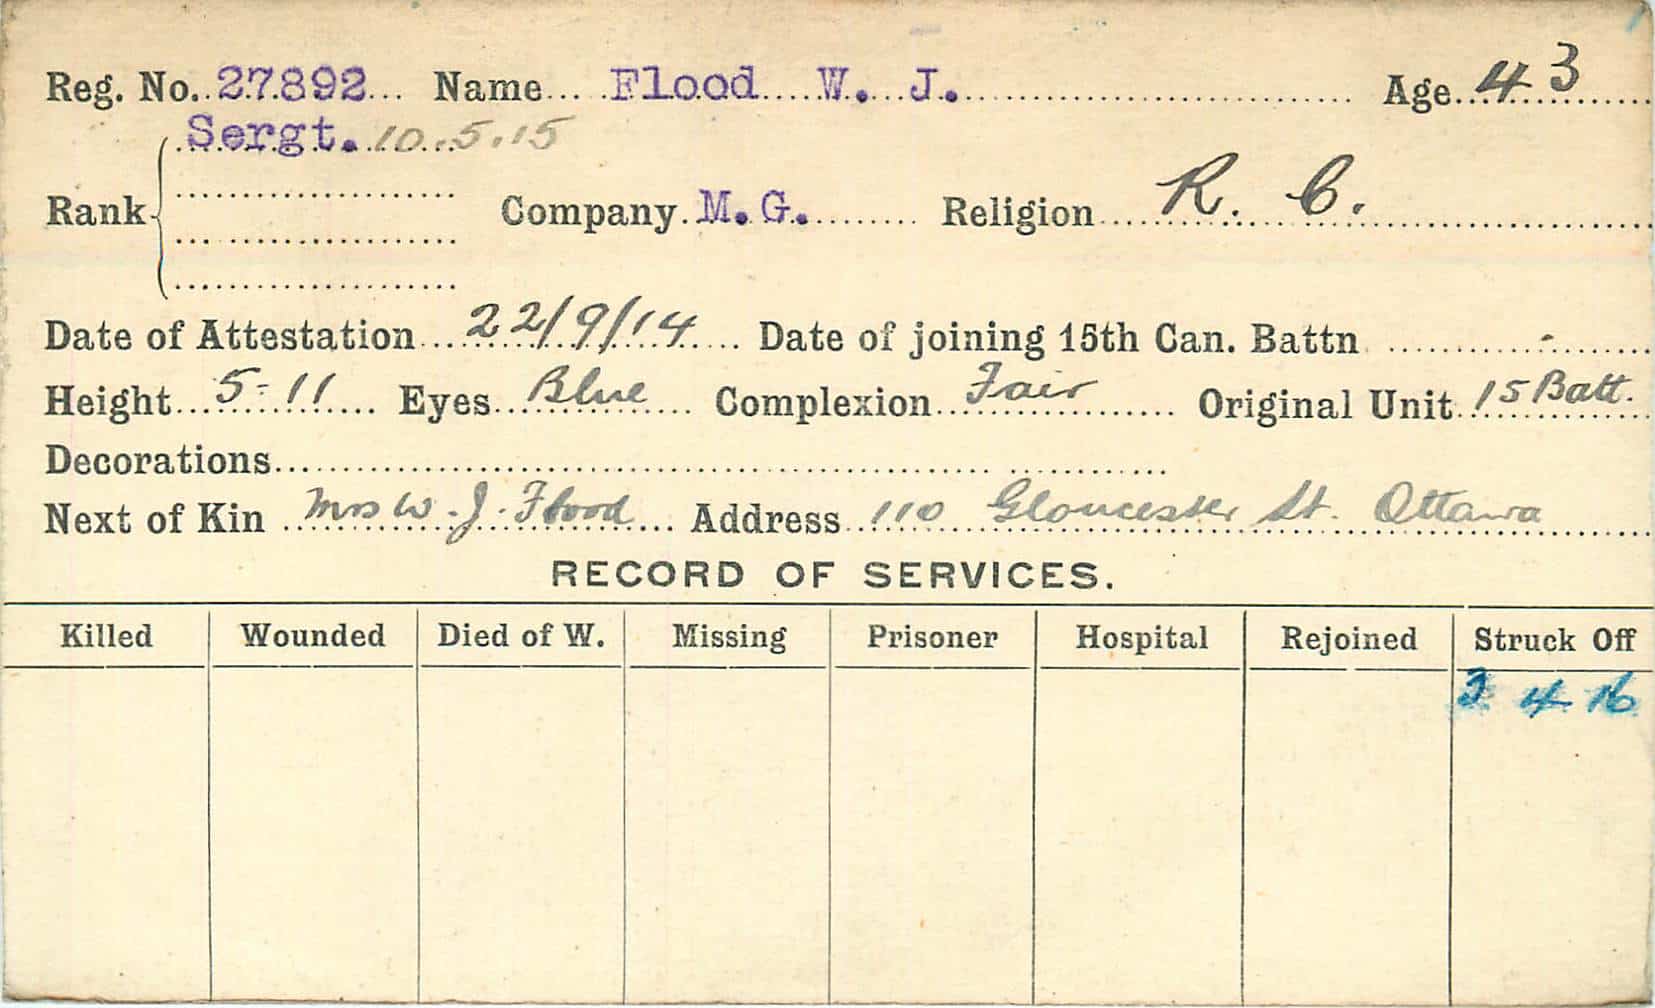 Reg. No. 27892 Name Flood W. J. Age 43
Sergt. 10.5.15
Rank Company M. G. Religion R. C.
Date of Attestation 22/9/14 Date of joining 15th Can. Battn -
Height 5-11 Eyes Blue Complexion Fair Original Unit 15 Batt.
Decorations
Next of Kin Mrs W. J. Flood Address 110 Gloucester St. Ottawa
RECORD OF SERVICES.
Killed Wounded Died of W. Missing Prisoner Hospital Rejoined Struck Off
3 4 16